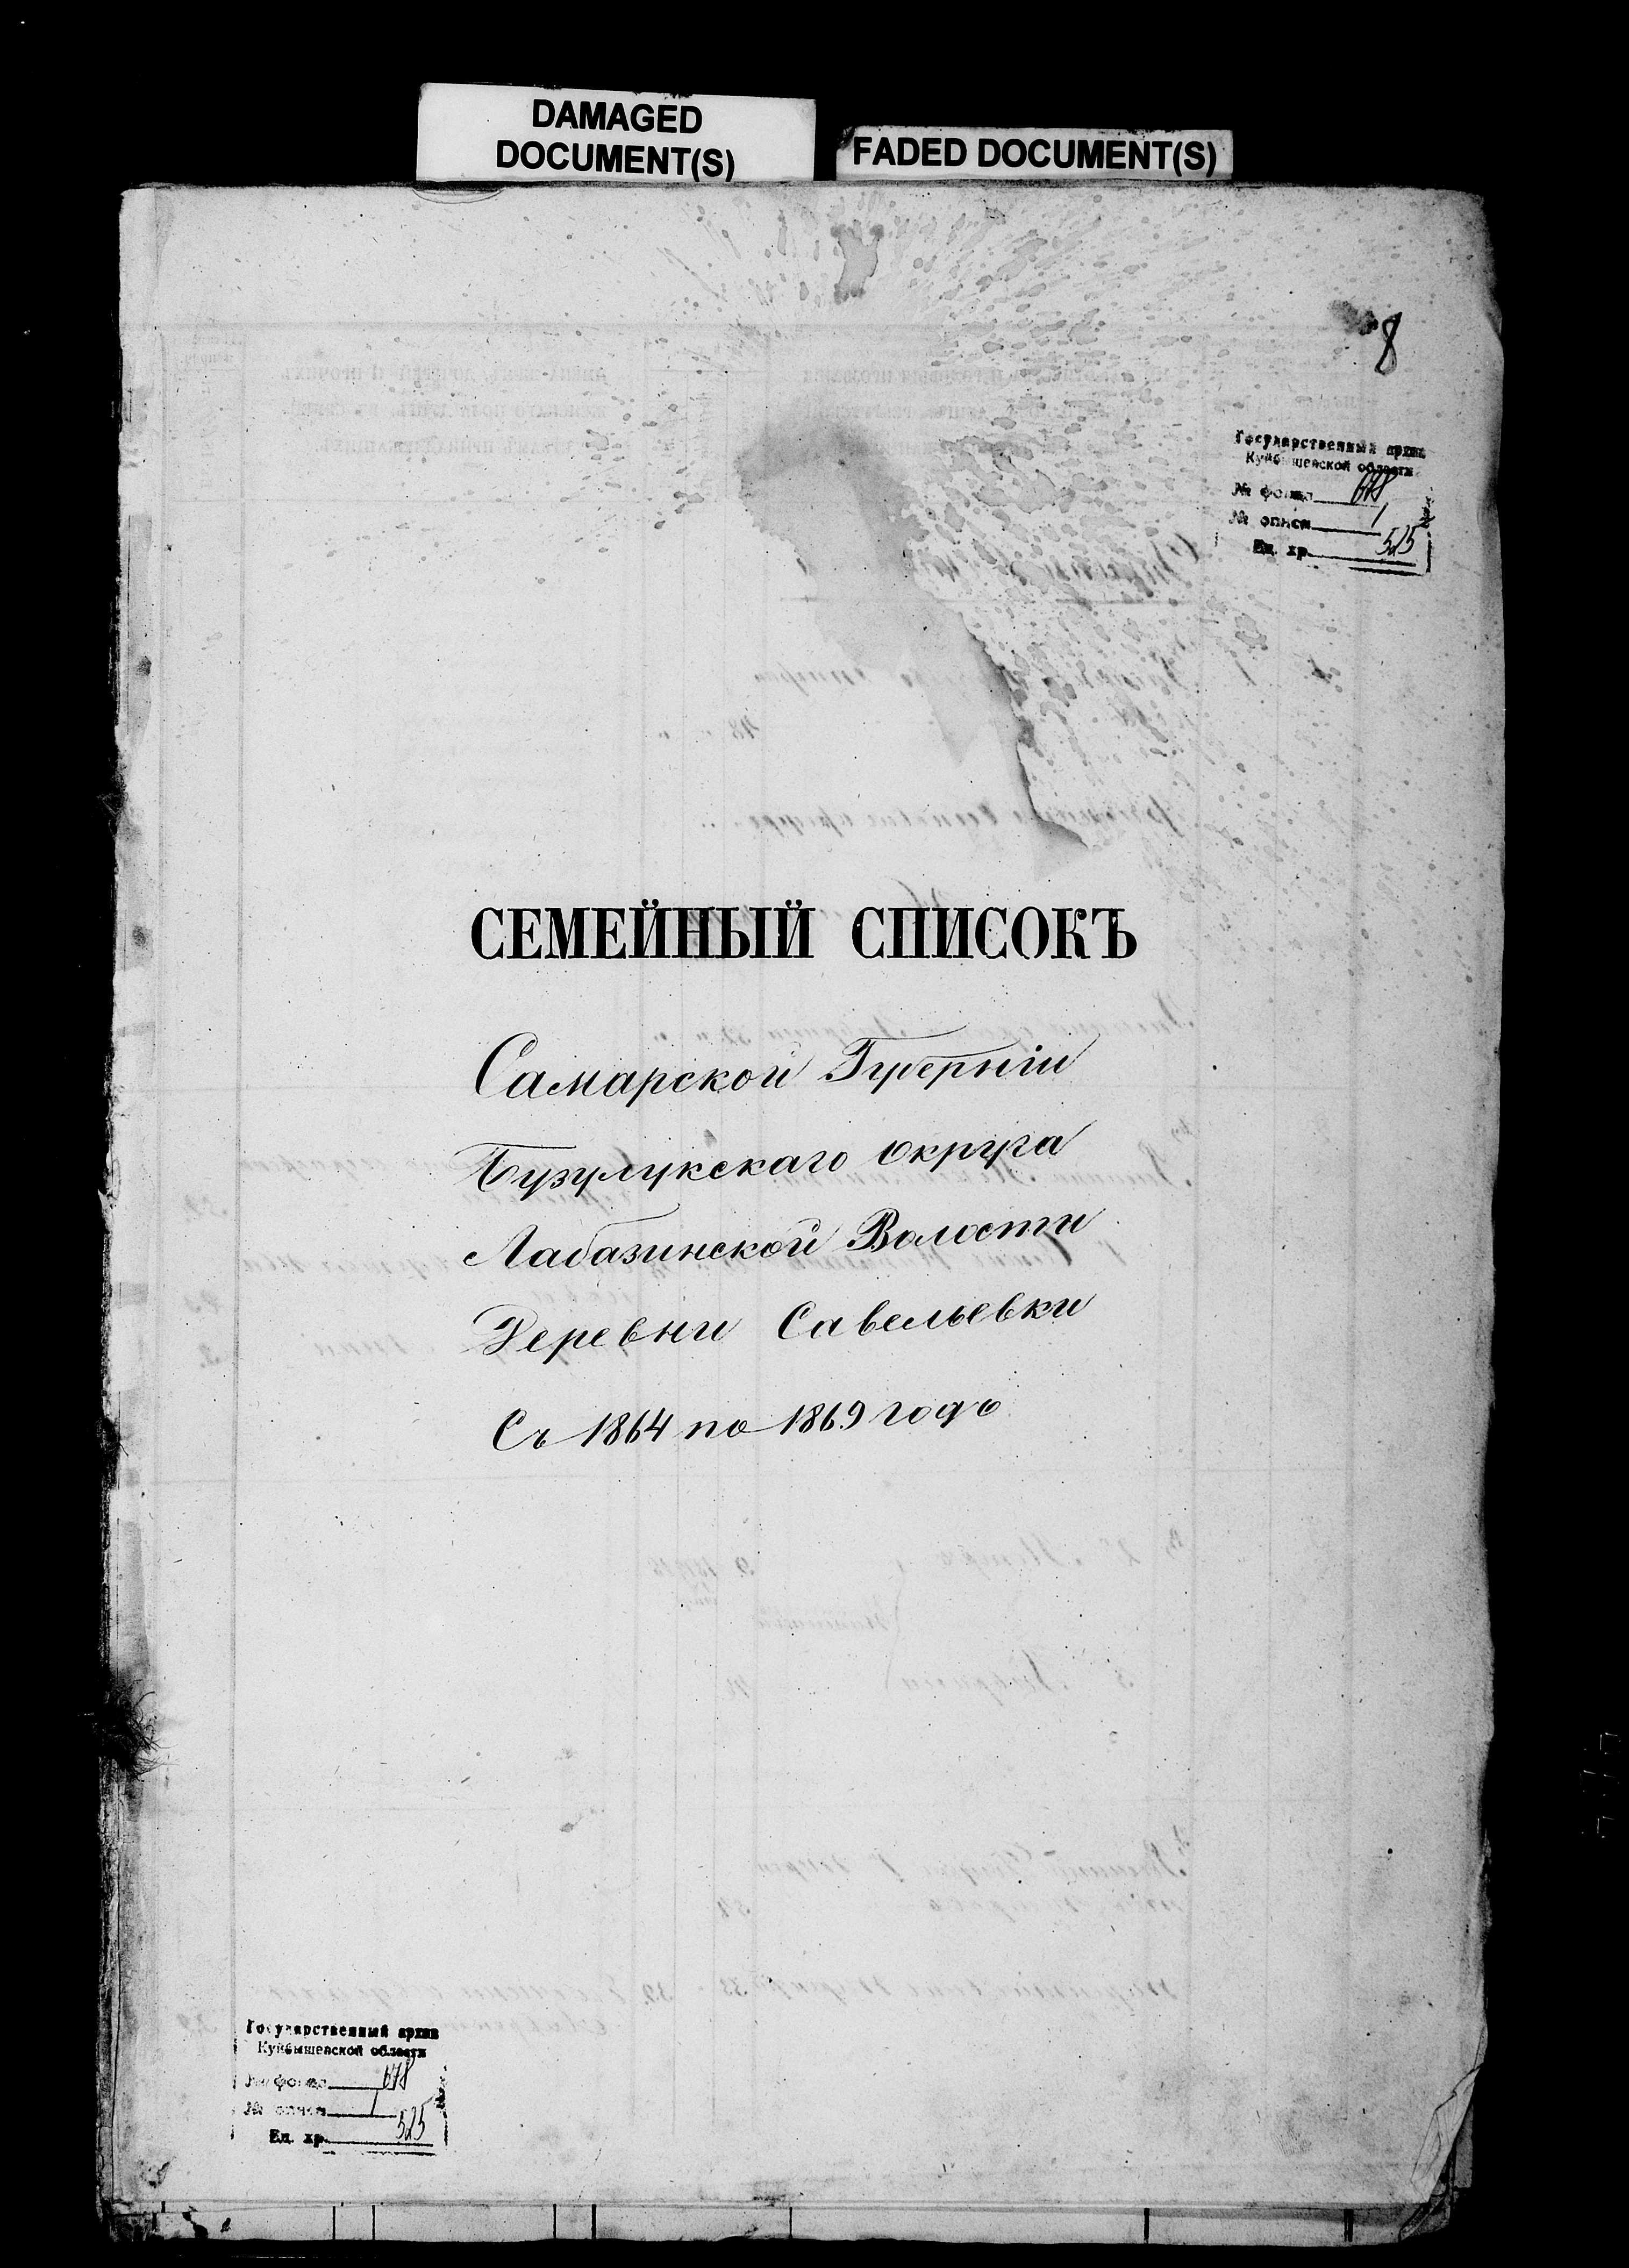 DAMAGED
DOCUMENT(S)
FADED DOCUMENT(S)
8
Государственный архив
Куйбышевской области
№ фонда 678
№ описи 1
Ед. хр. 525
СЕМЕЙНЫЙ СПИСОКЪ
Самарской Губерніи
Бузулукскаго Округа
Лабазинской Волости
Деревни Савельевки
Съ 1864 по 1869 годъ
Государственный архив
Куйбышевской области
№ фонда 678
№ описи 1
Ед. хр. 525